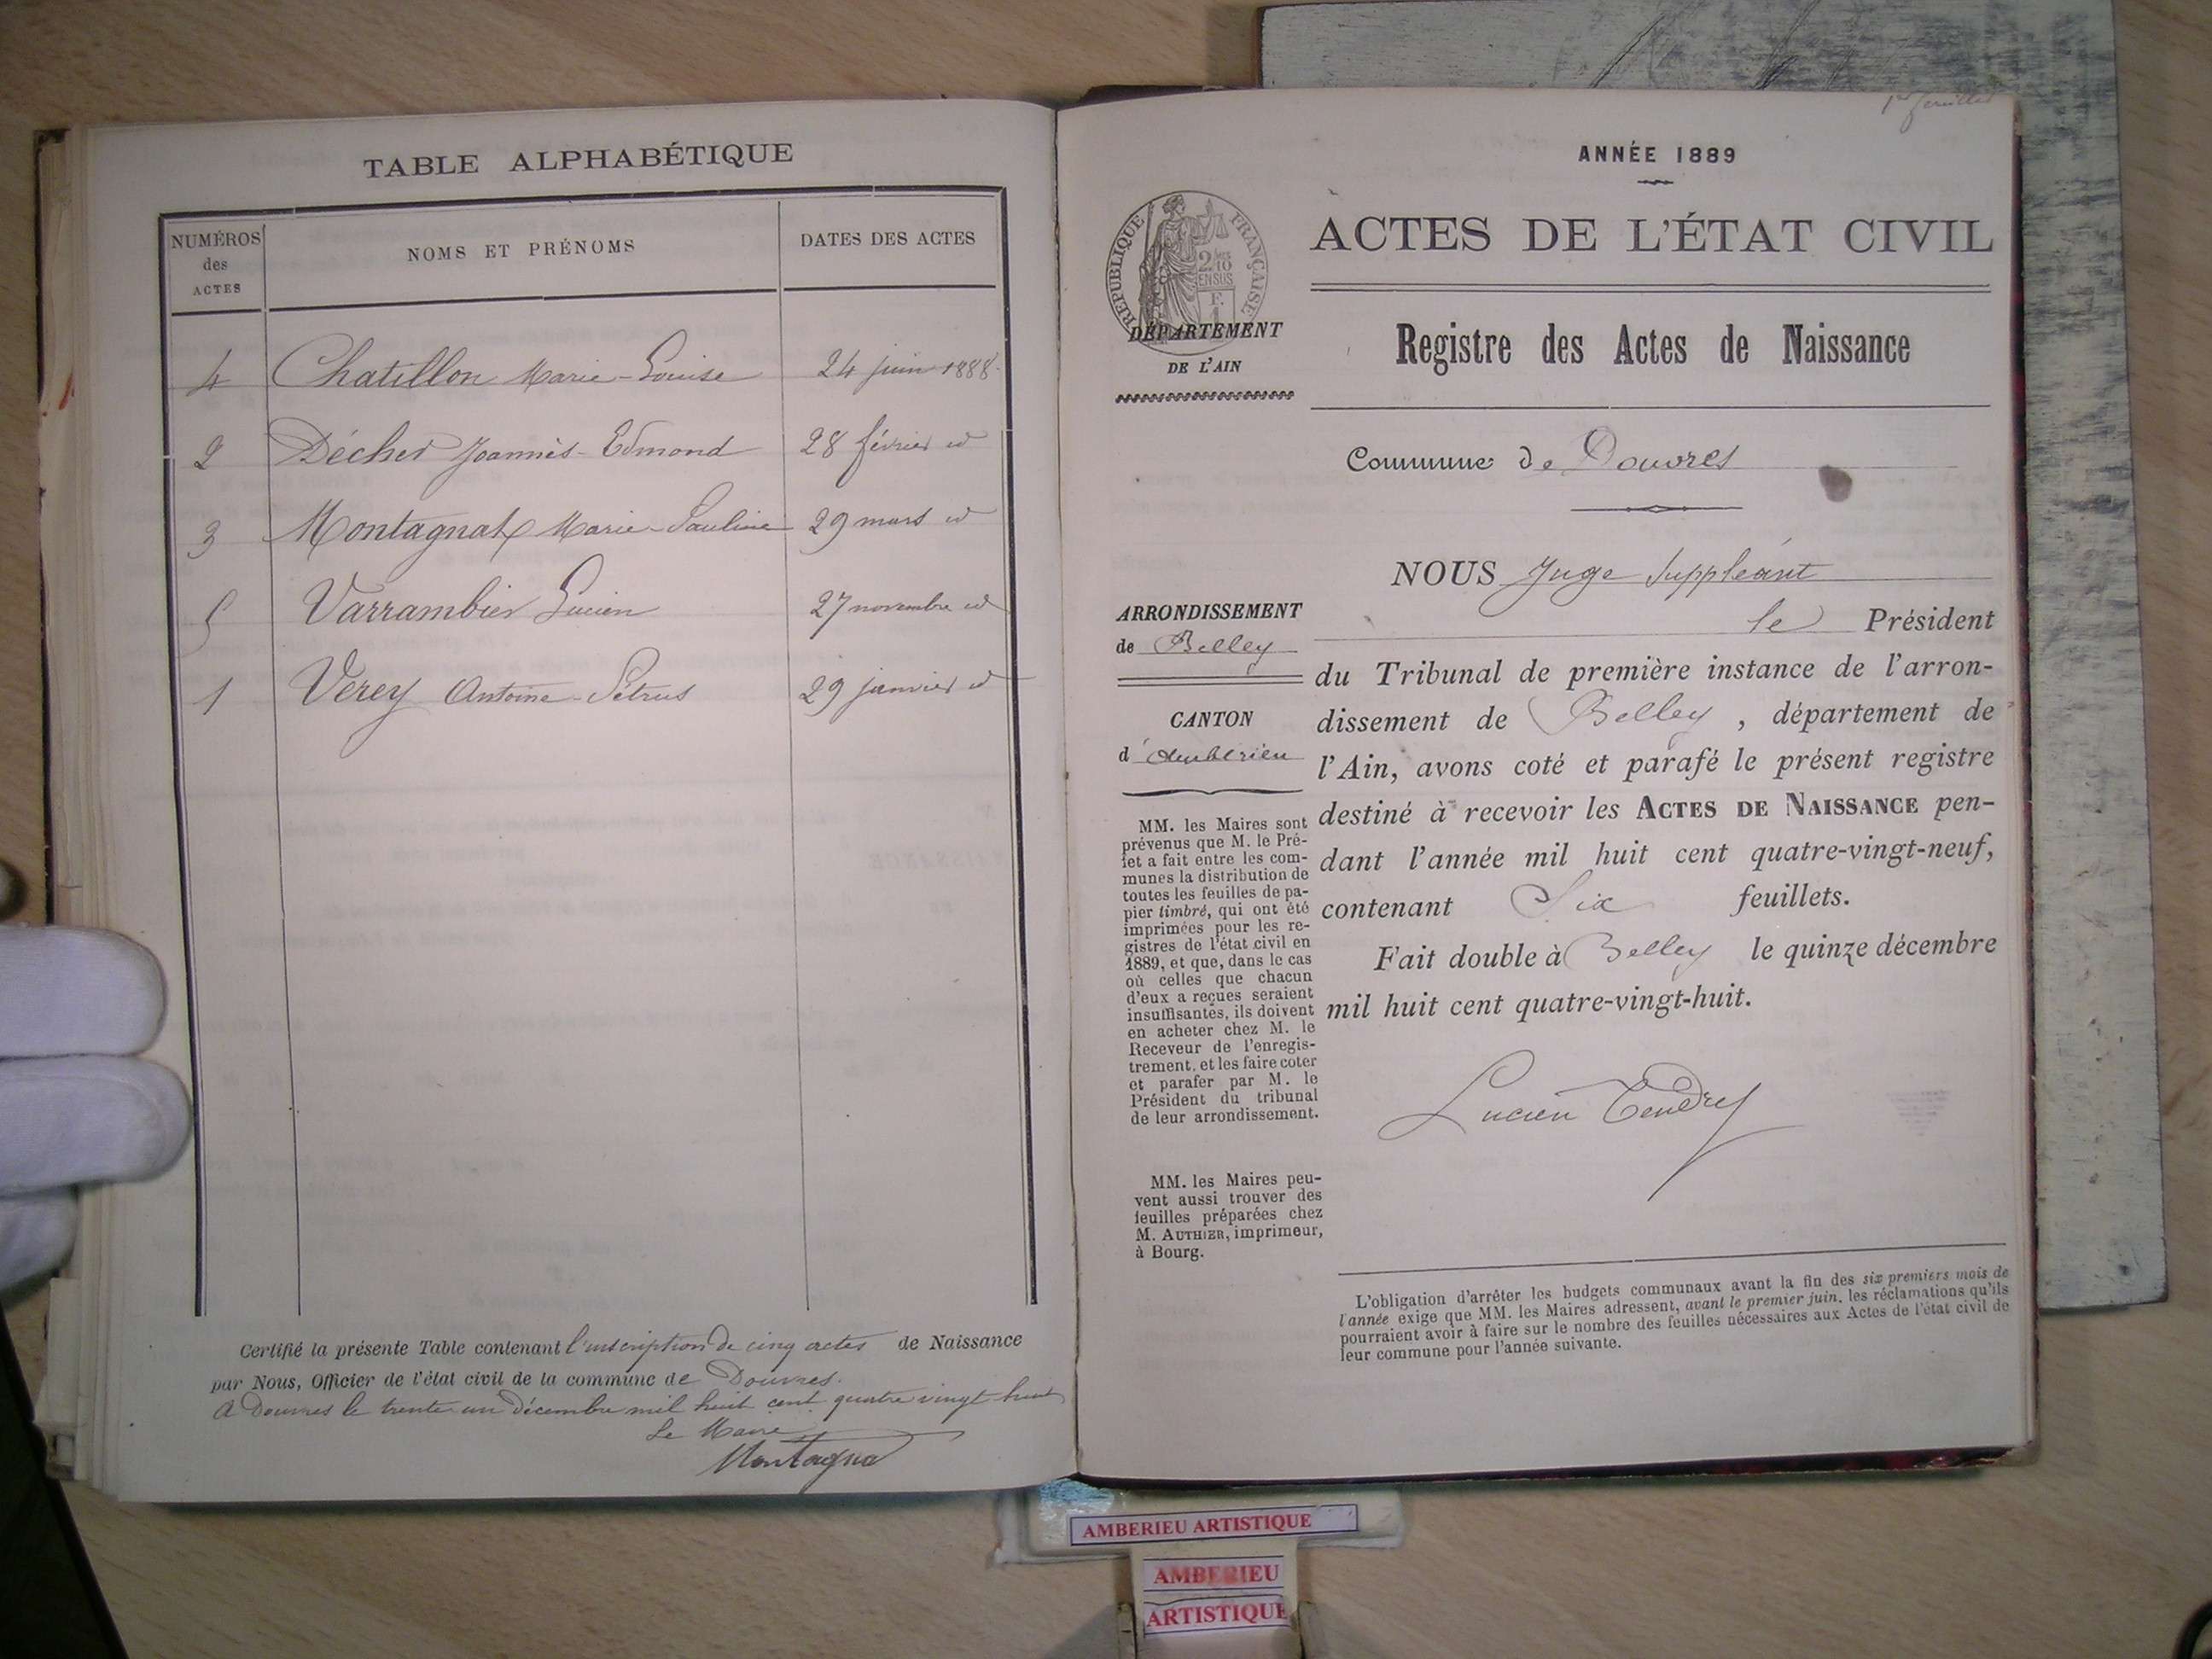 TABLE ALPHABÉTIQUE
NUMÉROS des ACTES
NOMS ET PRÉNOMS
DATES DES ACTES
4 Chatillon Marie-Louise 24 juin 1888
2 Décher Joannès-Edmond 28 février id
3 Montagnat Marie-Pauline 29 mars id
5 Varrambier Lucien 27 novembre id
1 Verey Antoine-Pétrus 29 janvier id
Certifié la présente Table contenant l'inscription de cinq actes de Naissance
par Nous, Officier de l'état civil de la commune de Douvres.
A Douvres le trente un décembre mil huit cent quatre vingt huit
Le Maire
Montagnat
1er feuillet
ANNÉE 1889
ACTES DE L'ÉTAT CIVIL
RÉPUBLIQUE FRANÇAISE
2/10 EN SUS
DÉPARTEMENT
DE L'AIN
Registre des Actes de Naissance
Commune de Douvres
ARRONDISSEMENT
de Belley
CANTON
d'Ambérieu
NOUS Juge Suppléant
le Président
du Tribunal de première instance de l'arron-
dissement de Belley, département de
l'Ain, avons coté et parafé le présent registre
destiné à recevoir les ACTES DE NAISSANCE pen-
dant l'année mil huit cent quatre-vingt-neuf,
contenant Six feuillets.
Fait double à Belley le quinze décembre
mil huit cent quatre-vingt-huit.
Lucien Tendret
MM. les Maires sont
prévenus que M. le Pré-
fet a fait entre les com-
munes la distribution de
toutes les feuilles de pa-
pier timbré, qui ont été
imprimées pour les re-
gistres de l'état civil en
1889, et que, dans le cas
où celles que chacun
d'eux a reçues seraient
insuffisantes, ils doivent
en acheter chez M. le
Receveur de l'enregis-
trement, et les faire coter
et parafer par M. le
Président du tribunal
de leur arrondissement.
MM. les Maires peu-
vent aussi trouver des
feuilles préparées chez
M. AUTHIER, imprimeur,
à Bourg.
L'obligation d'arrêter les budgets communaux avant la fin des six premiers mois de
l'année exige que MM. les Maires adressent, avant le premier juin, les réclamations qu'ils
pourraient avoir à faire sur le nombre des feuilles nécessaires aux Actes de l'état civil de
leur commune pour l'année suivante.
AMBERIEU ARTISTIQUE
AMBERIEU
ARTISTIQUE